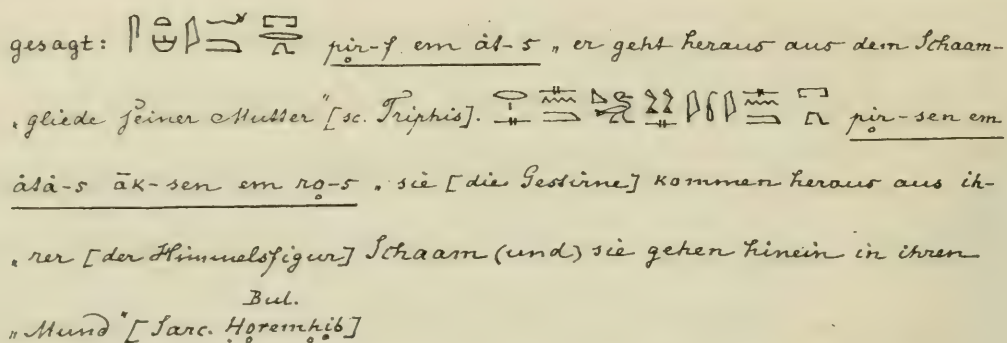 gesagt: pir-f em ȧt-s „ er geht heraus aus dem Schaam-
„gliede seiner Mutter" [sc. Triphis]. pir-sen em
ȧtȧ-s āk-sen em ro-s „ sie [die Gestirne] kommen heraus aus ih-
„ rer [der Himmelsfigur] Schaam (und) sie gehen hinein in ihren
Bul.
„Mund" [Sarc. Ḥoremḥib]